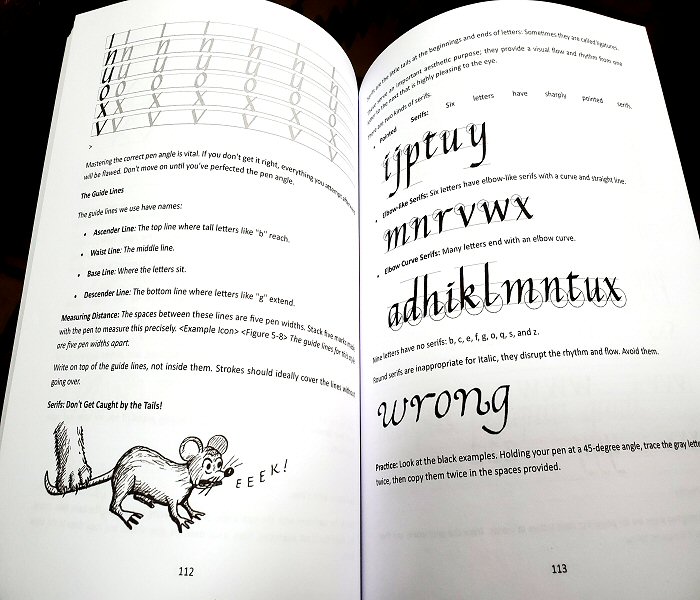 l l l l l l
n n n n n n
u u u u u u
o o o o o o
x x x x x x
v v v v v v
>
Mastering the correct pen angle is vital. If you don't get it right, everything you attempt afterward
will be flawed. Don't move on until you've perfected the pen angle.
The Guide Lines
The guide lines we use have names:
• Ascender Line: The top line where tall letters like "b" reach.
• Waist Line: The middle line.
• Base Line: Where the letters sit.
• Descender Line: The bottom line where letters like "g" extend.
Measuring Distance: The spaces between these lines are five pen widths. Stack five marks made
with the pen to measure this precisely. <Example Icon> <Figure 5-8> The guide lines for this style
are five pen widths apart.
Write on top of the guide lines, not inside them. Strokes should ideally cover the lines without
going over.
Serifs: Don't Get Caught by the Tails!
EEEK!
112
Serifs are the little tails at the beginnings and ends of letters. Sometimes they are called ligatures.
These serve an important aesthetic purpose; they provide a visual flow and rhythm from one
letter to the next that is highly pleasing to the eye.
There are two kinds of serifs.
• Pointed Serifs: Six letters have sharply pointed serifs.
ijptuy
• Elbow-like Serifs: Six letters have elbow-like serifs with a curve and straight line.
mnrvwx
• Elbow Curve Serifs: Many letters end with an elbow curve.
adhiklmntux
Nine letters have no serifs: b, c, e, f, g, o, q, s, and z.
Round serifs are inappropriate for Italic, they disrupt the rhythm and flow. Avoid them.
wrong
Practice: Look at the black examples. Holding your pen at a 45-degree angle, trace the gray letters
twice, then copy them twice in the spaces provided.
113